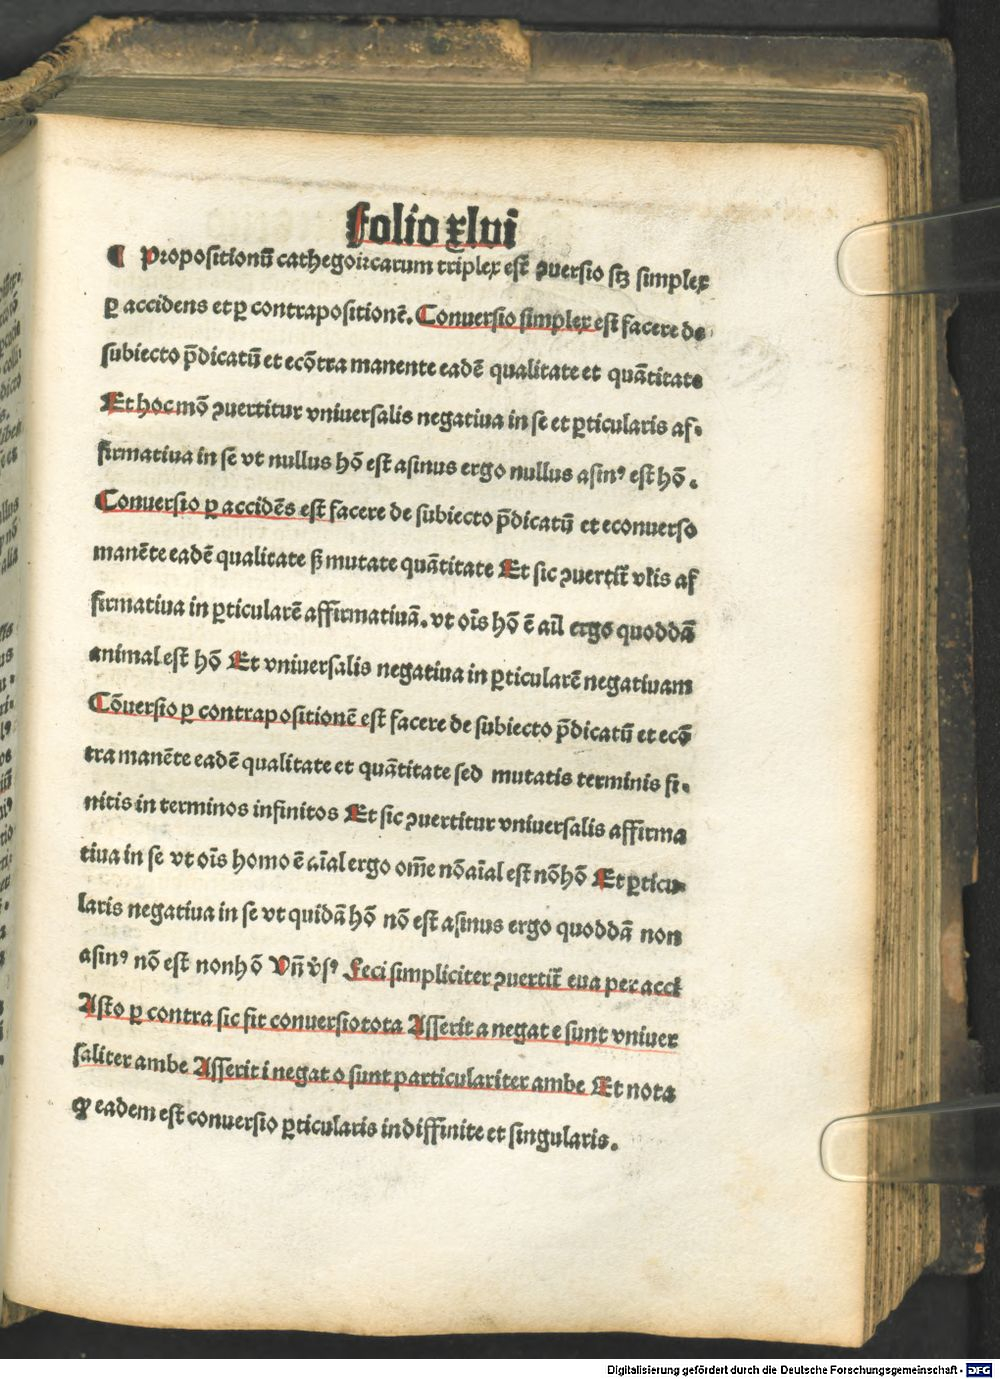 folio xlvi
¶ Propositionū cathegoricarum triplex est ꝯuersio sꝫ simplex
ꝑ accidens et ꝑ contrapositionē. Conuersio simplex est facere de
subiecto p̄dicatū et ecōtra manente eadē qualitate et quātitate
Et hoc mō ꝯuertitur vniuersalis negatiua in se et ꝑticularis af-
firmatiua in se vt nullus hō est asinus ergo nullus asinꝰ est hō.
Conuersio ꝑ accidēs est facere de subiecto p̄dicatū et econuerso
manēte eadē qualitate ß mutate quātitate Et sic ꝯuertit̄ vl̄is af
firmatiua in ꝑticularē affirmatiuā. vt oīs hō ē aīl ergo quoddā
animal est hō Et vniuersalis negatiua in ꝑticularē negatiuam
Cōuersio ꝑ contrapositionē est facere de subiecto p̄dicatū et ecō
tra manēte eadē qualitate et quātitate sed mutatis terminis fi-
nitis in terminos infinitos Et sic ꝯuertitur vniuersalis affirma
tiua in se vt oīs homo ē aīal ergo om̄e nōaīal est nōhō Et ꝑticu-
laris negatiua in se vt quidā hō nō est asinus ergo quoddā non
asinꝰ nō est nonhō Vn̄ v̄sꝰ Feci simpliciter ꝯuertit̄ eua per acci
Asto ꝑ contra sic fit conuersio tota Asserit a negat e sunt vniuer
saliter ambe Asserit i negat o sunt particulariter ambe Et nota
ꝙ eadem est conuersio ꝑticularis indiffinite et singularis.
Digitalisierung gefördert durch die Deutsche Forschungsgemeinschaft - DFG